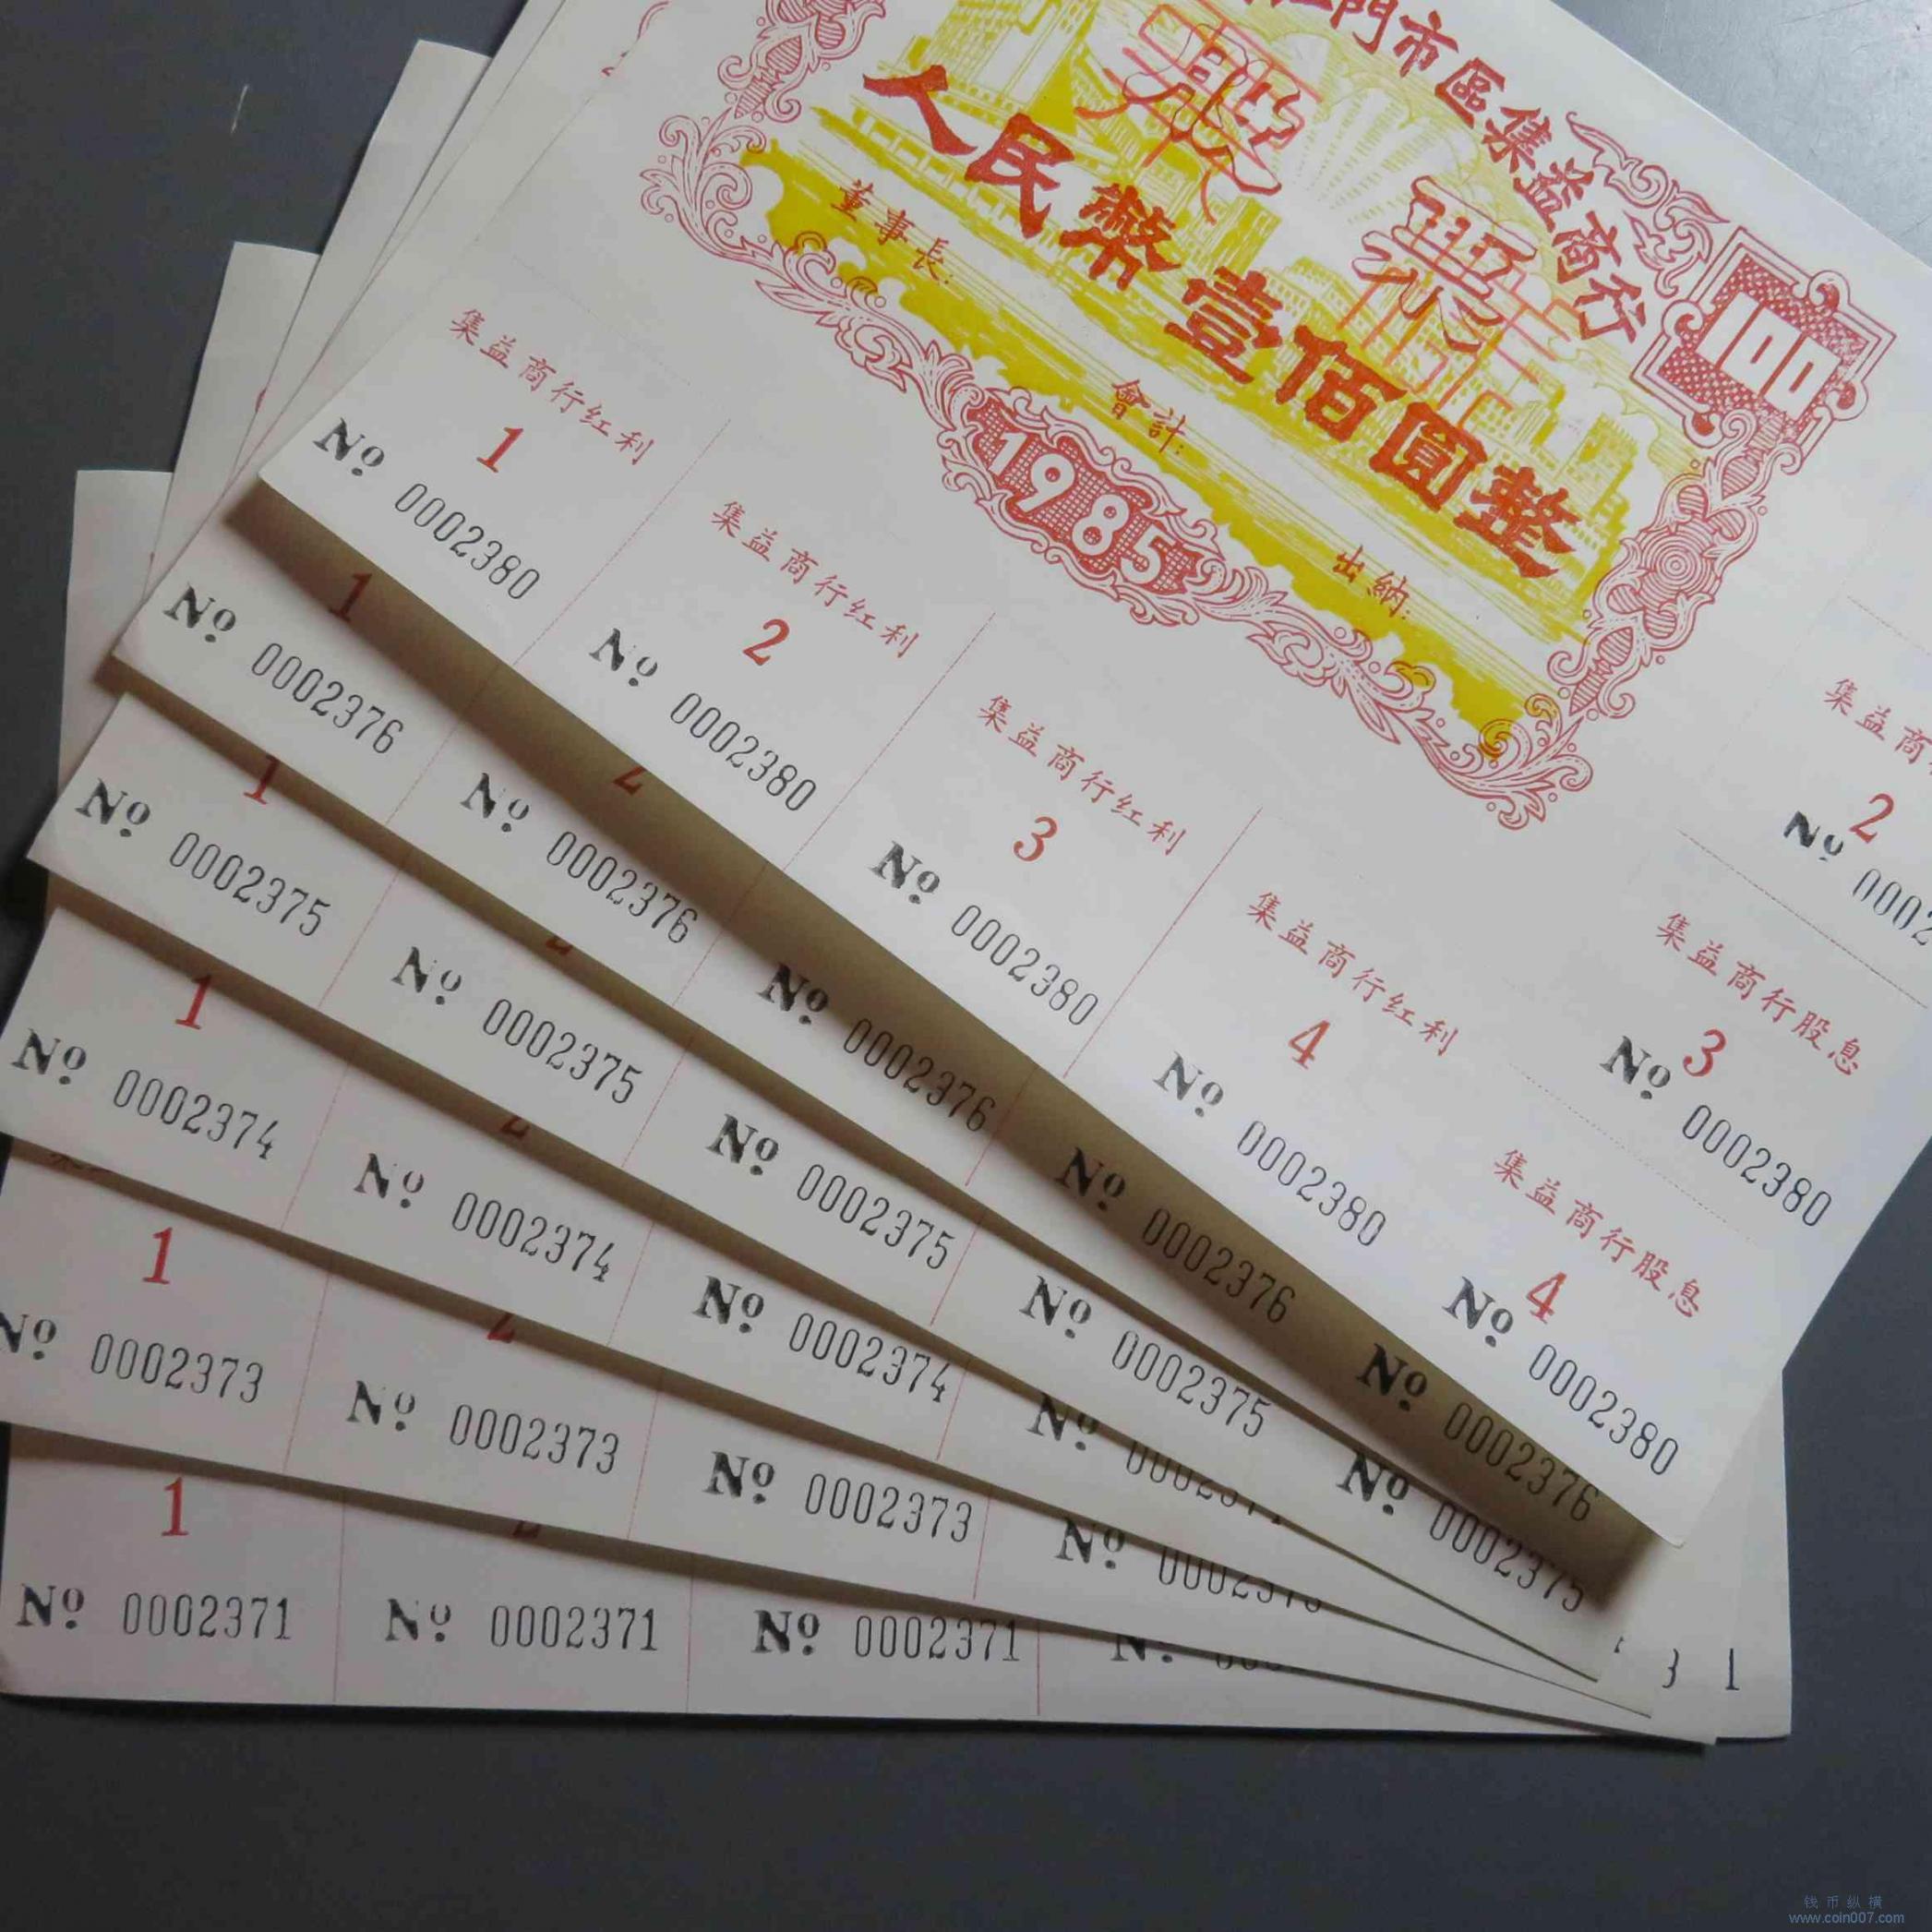 江門市區集益商行
股票
100
人民幣壹佰圓整
董事長:
會計:
出納:
1985
集益商行红利
1
No 0002380
集益商行红利
2
No 0002380
集益商行红利
3
No 0002380
集益商行红利
4
No 0002380
集益商
2
No 0002
集益商行股息
3
No 0002380
集益商行股息
4
No 0002380
1
No 0002376
2
No 0002376
No 0002376
No 0002376
No 0002376
1
No 0002375
No 0002375
No 0002375
No 0002375
No 0002375
1
No 0002374
No 0002374
No 0002374
No
1
No 0002373
No 0002373
No 0002373
No
1
No 0002371
No 0002371
No 0002371
No
钱币纵横
www.coin007.com